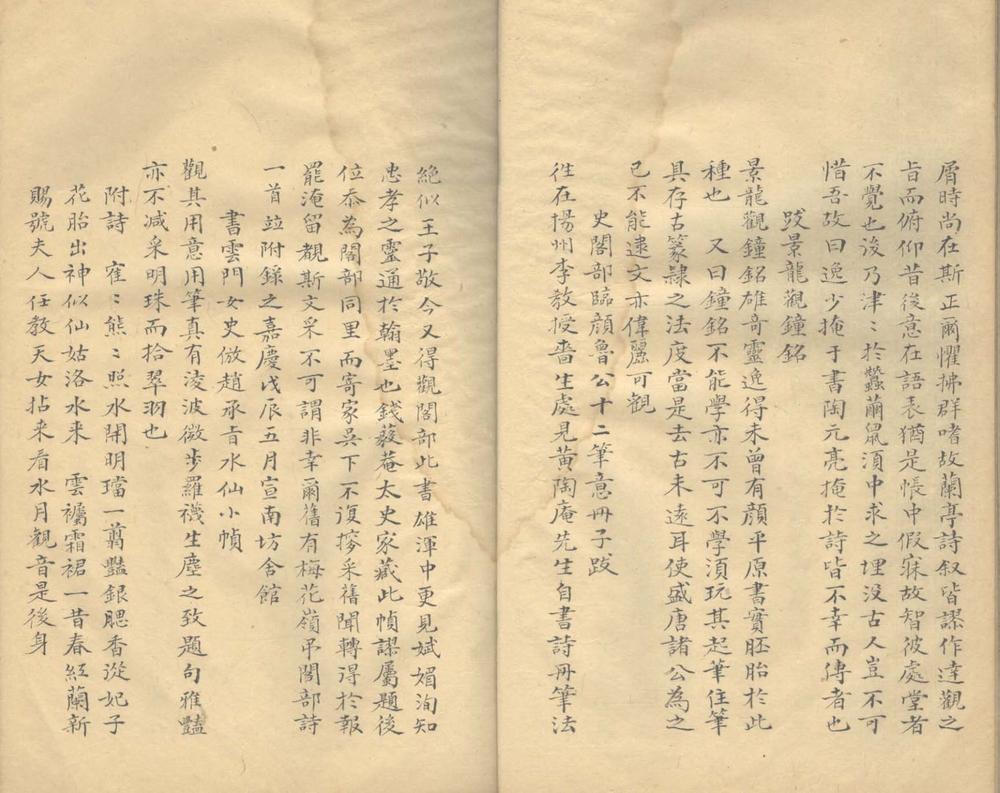 屑時尚在斯正爾懼拂群嗜故蘭亭詩叙皆謬作達觀之
旨而俯仰昔後意在語表猶是帳中假寐故智彼處堂者
不覺也後乃津〻於蠶繭鼠湏中求之埋没古人豈不可
惜吾故曰逸少掩于書陶元亮掩於詩皆不幸而傳者也
跋景龍觀鐘銘
景龍觀鐘銘雄奇靈逸得未曾有顔平原書實胚胎於此
種也 又曰鐘銘不能學亦不可不學湏玩其起筆住筆
具存古篆隸之法度當是去古未遠耳使盛唐諸公為之
已不能逮文亦偉麗可觀
史閣部臨顔魯公十二筆意冊子跋
往在揚州李教授嗇生處見黄陶庵先生自書詩冊筆法
絶似王子敬今又得觀閣部此書雄渾中更見斌媚洵知
忠孝之靈通於翰墨也錢蘂菴太史家藏此幀謬屬題後
位忝為閣部同里而寄家吴下不復撏采舊聞轉得於報
罷淹留覩斯文采不可謂非幸爾舊有梅花嶺吊閣部詩
一首竝附錄之嘉慶戊辰五月宣南坊舍館
書雲門女史倣趙承旨水仙小幀
觀其用意用筆真有淩波微步羅襪生塵之致題句雅豔
亦不减采明珠而拾翠羽也
附詩 寉〻熊〻照水開明璫一翦豔銀腮香從妃子
花胎出神似仙姑洛水来 雲襹霜裙一昔春紅蘭新
賜號夫人任教天女拈来看水月観音是後身